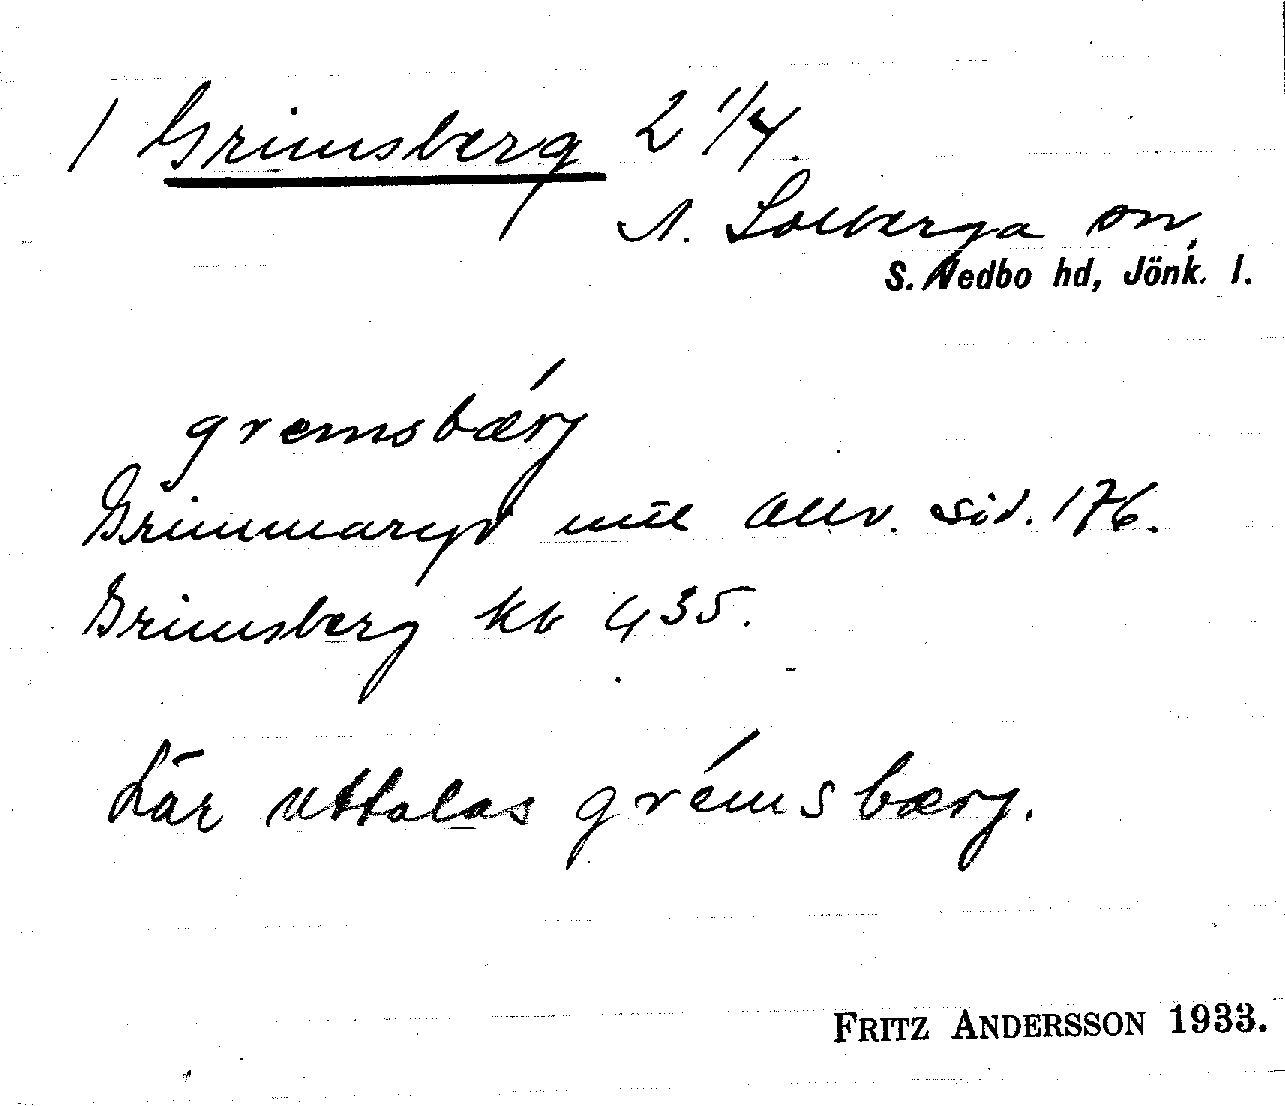 1 Grimsberg 2 1/4
N. Solberga sn,
S. Vedbo hd, Jönk. l.
gremsbærj
Grimmaryd Allv. sid. 176.
Grimsberg kb 435.
Lär uttalas grémsbærj.
FRITZ ANDERSSON 1933.